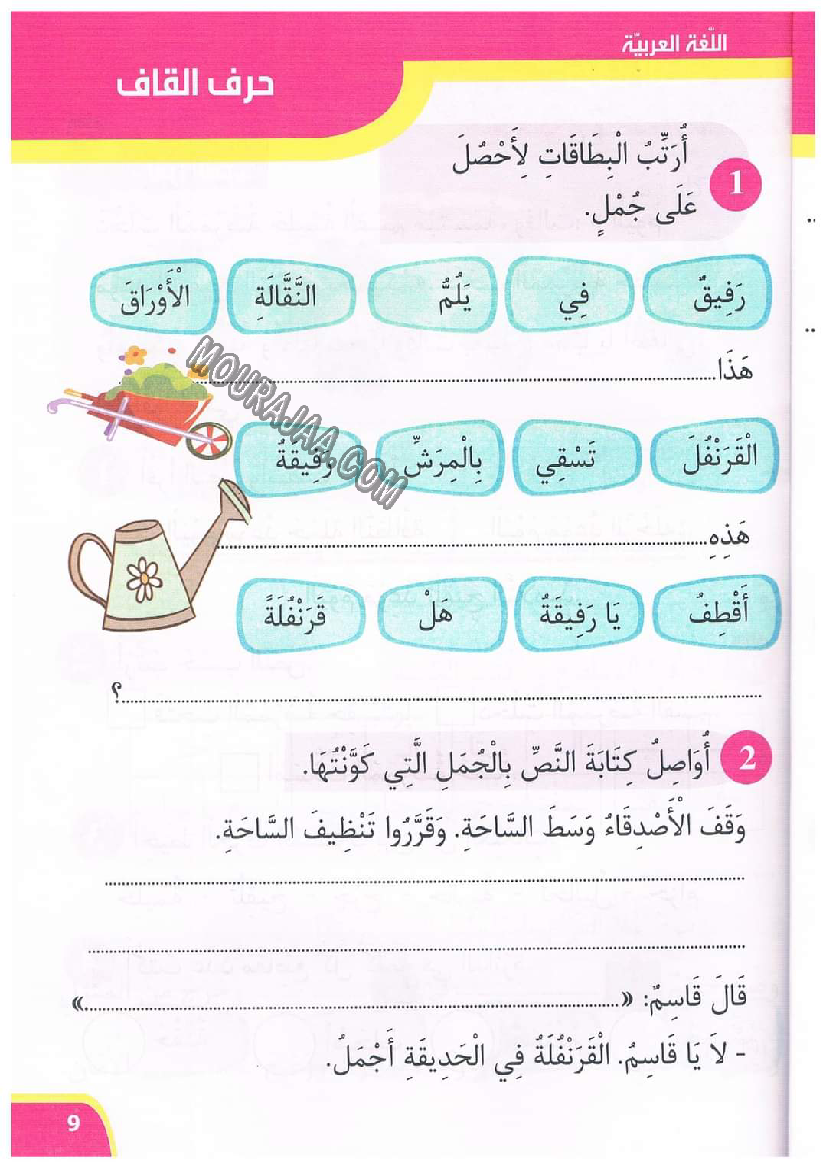 اللّغة العربيّة
حرف القاف
1
أُرَتِّبُ الْبِطَاقَاتِ لِأَحْصُلَ
عَلَى جُمْلٍ.
رَفِيقٌ فِي يَلُمُّ النَّقَّالَةِ الْأَوْرَاقَ
هَذَا
MOURAJAA.COM
الْقَرَنْفُلَ تَسْقِي بِالْمِرَشِّ رَفِيقَةُ
هَذِهِ
أَقْطِفُ يَا رَفِيقَةُ هَلْ قَرَنْفُلَةً
؟
2 أُوَاصِلُ كِتَابَةَ النَّصِّ بِالْجُمَلِ الَّتِي كَوَّنْتُهَا.
وَقَفَ الْأَصْدِقَاءُ وَسَطَ السَّاحَةِ. وَقَرَّرُوا تَنْظِيفَ السَّاحَةِ.
قَالَ قَاسِمٌ: «..........»
- لاَ يَا قَاسِمُ. الْقَرَنْفُلَةُ فِي الْحَدِيقَةِ أَجْمَلُ.
9